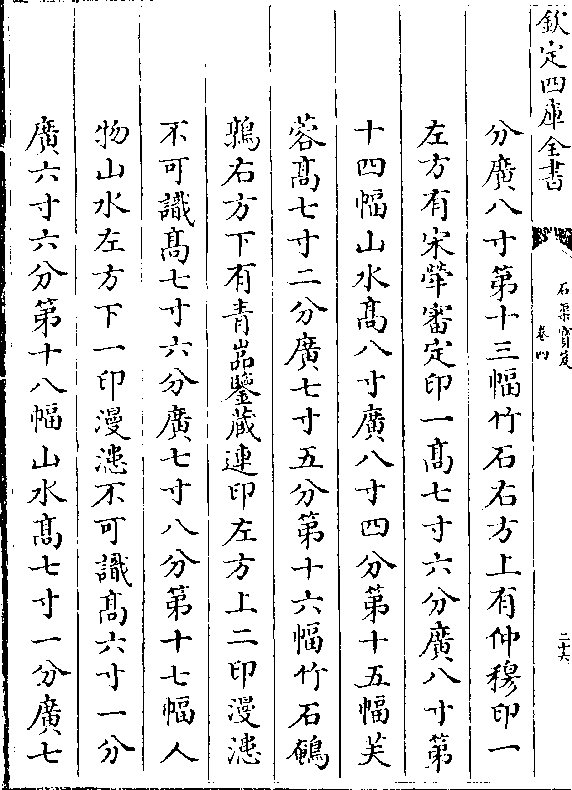 欽定四庫全書
石渠寶笈
卷四
二十六
分廣八寸第十三幅竹石右方上有仲穆印一
左方有宋犖審定印一髙七寸六分廣八寸第
十四幅山水髙八寸廣八寸四分第十五幅芙
蓉髙七寸二分廣七寸五分第十六幅竹石鵪
鶉右方下有青喦鑒藏連印左方上二印漫漶
不可識髙七寸六分廣七寸八分第十七幅人
物山水左方下一印漫漶不可識髙六寸一分
廣六寸六分第十八幅山水髙七寸一分廣七